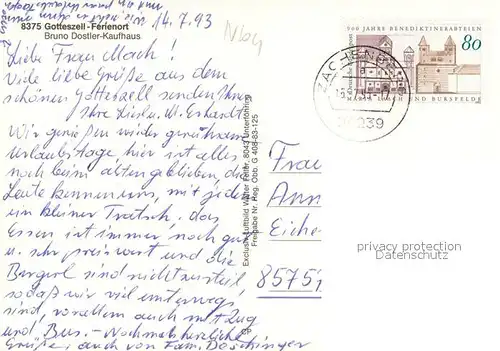 14.7.93
8375 Gotteszell-Ferienort
Bruno Dostler-Kaufhaus
Liebe Frau Mach!
Viele liebe Grüße aus dem
schönen Gotteszell senden Ihnen
Ihre Liesl u. W. Erhardt
Wir genießen wieder geruhsame
Urlaubstage hier ist alles
noch beim alten geblieben, die
Leute kennen uns, mit jedem
ein kleiner Tratsch, das
Essen ist immer noch gut
u. sehr preiswert und die
Bergerl sind nicht zu steil,
sodaß wir viel unterwegs
sind, vor allem auch mit Zug
und Bus. - Nochmals herzliche
Grüße, auch von Fam. Döschinger
Exclusiv Luftbild Walter Feiler, 8043 Unterföhring
Freigabe Nr. Reg. Obb. G 408-83-125
900 JAHRE BENEDIKTINERABTEIEN
80
MARIA LAACH UND BURSFELDE
ZACHENB
94239
Frau
Ann
Eiche
85757
privacy protection
Datenschutz